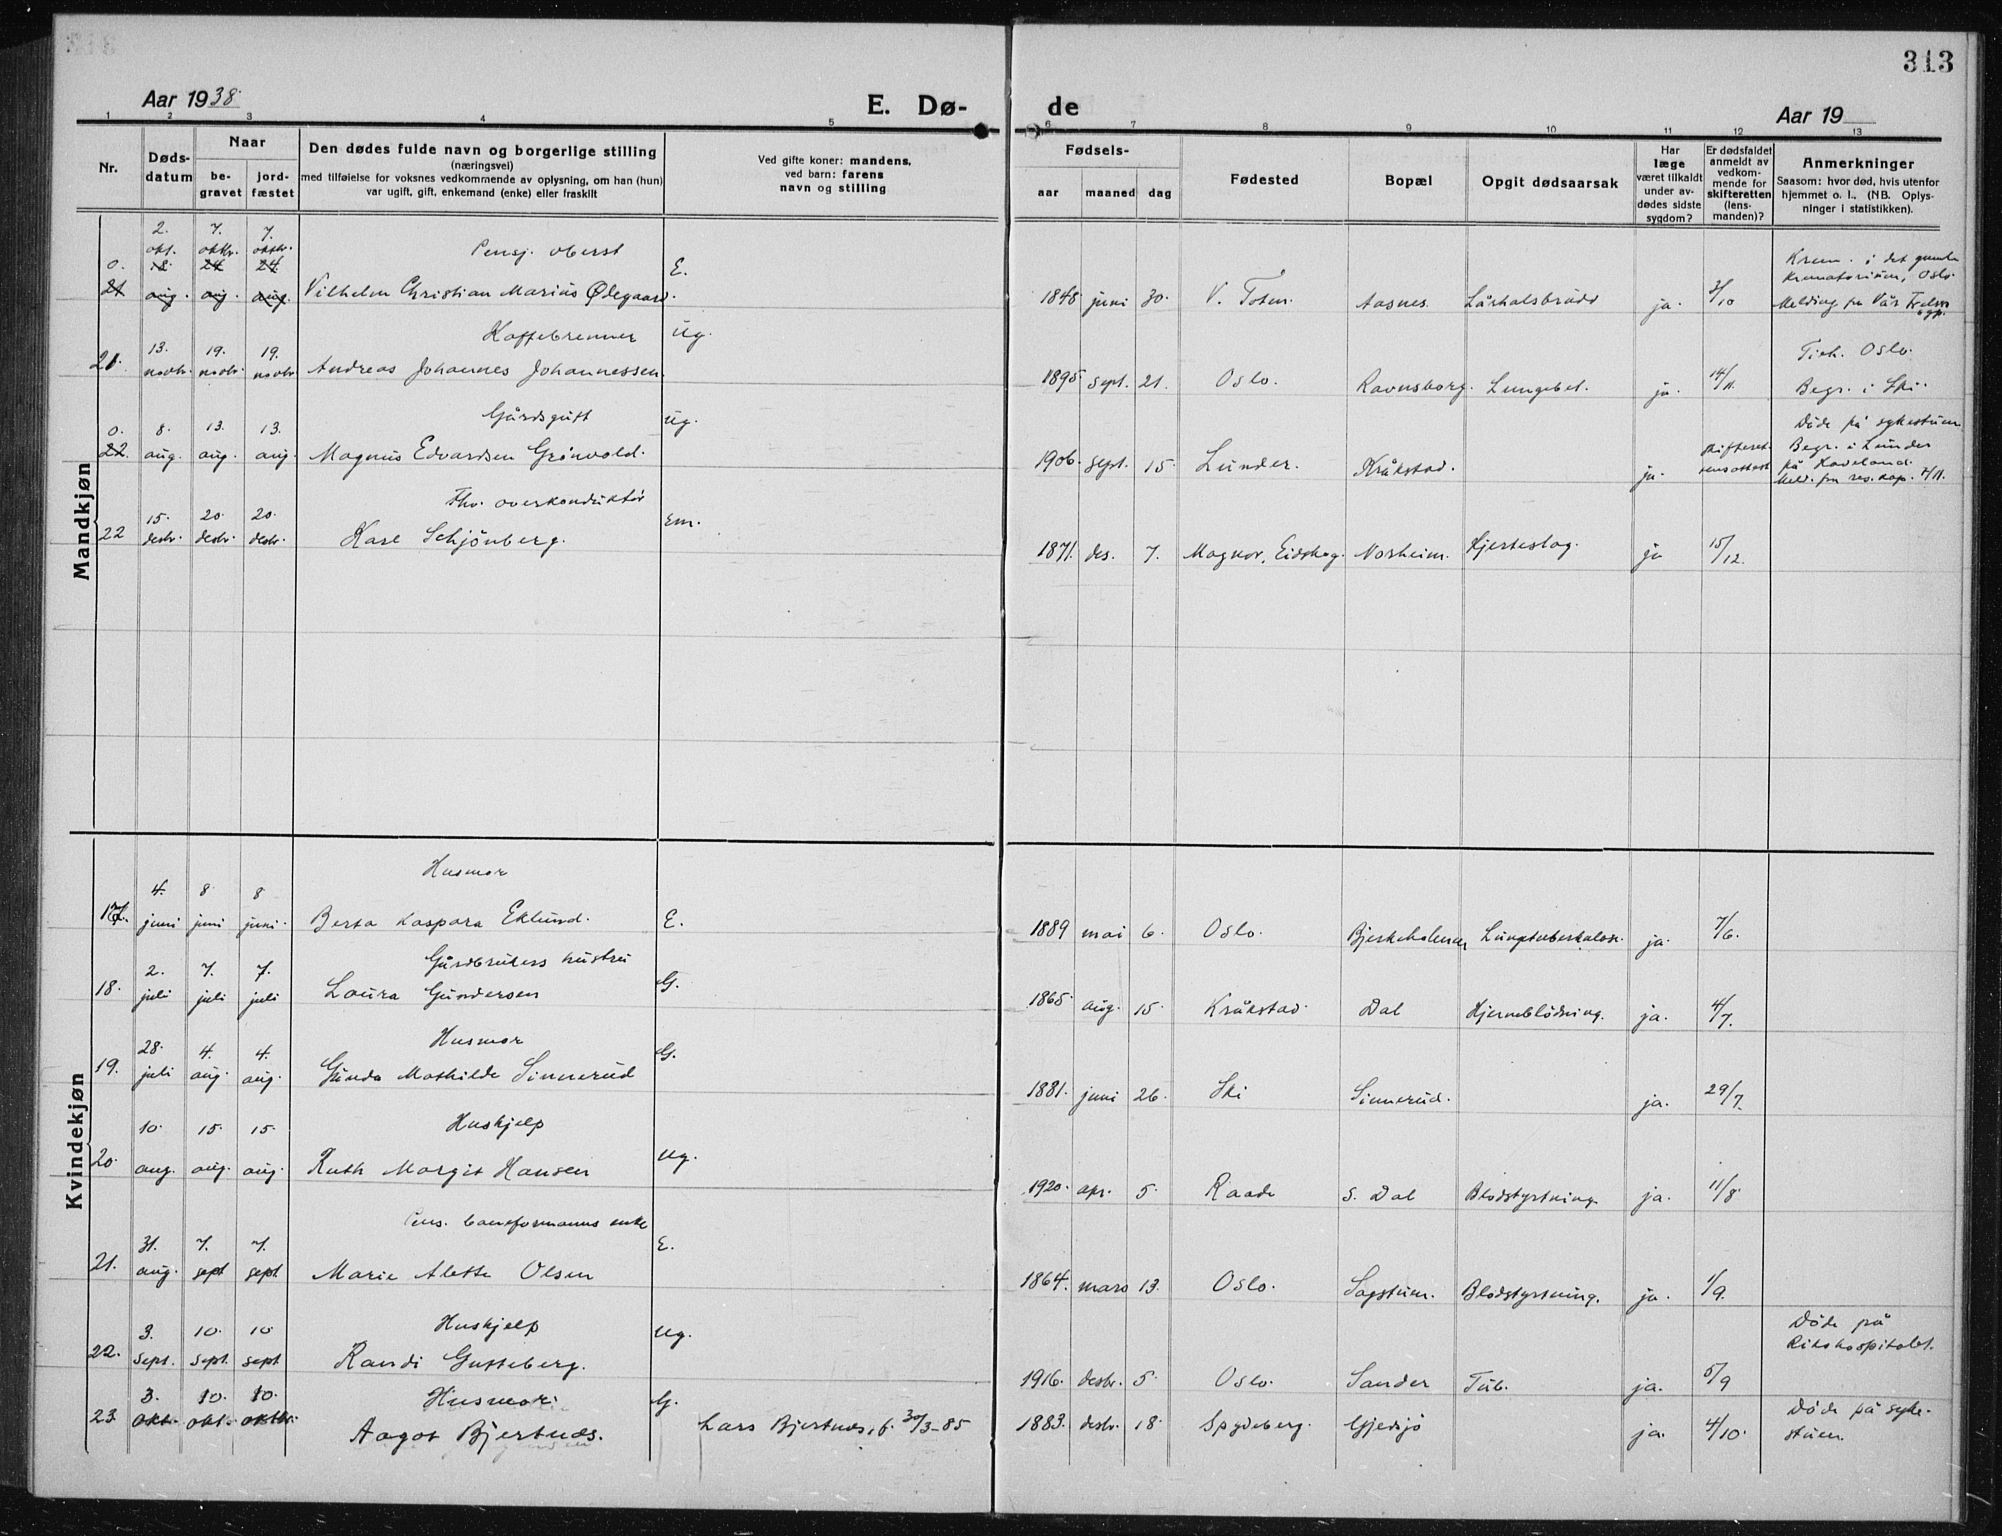 313
Aar 1938.
E. Dø-
de
Aar 19
1 2 3 4 5 6 7 8 9 10 11 12 13
Nr.
Døds-
datum
Naar
be-
gravet
jord-
fæstet
Den dødes fulde navn og borgerlige stilling
(næringsvei)
med tilføielse for voksnes vedkommende av oplysning, om han (hun)
var ugift, gift, enkemand (enke) eller fraskilt
Ved gifte koner: mandens,
ved barn: farens
navn og stilling
Fødsels-
aar maaned dag
Fødested
Bopæl
Opgit dødsaarsak
Har
læge
været tilkaldt
under av-
dødes sidste
sygdom?
Er dødsfaldet
anmeldt av
vedkom-
mende for
skifteretten
(lens-
manden)?
Anmerkninger
Saasom: hvor død, hvis utenfor
hjemmet o. l., (NB. Oplys-
ninger i statistikken).
Mandkjøn
2. 7. 7.
okt. oktbr. oktbr. Pensj. oberst Krem. i det gamle
0. 18. 24. 24. E. Krematorium, Oslo.
21 aug. aug. aug. Vilhelm Christian Marius Ødegaard. 1848 juni 30. V. Toten. Aasnes. Lårhalsbrudd ja. 3/10 Melding fra Vår Frelsers
Kaffebrenner ug.
13. 19. 19. Tieh. Oslo.
21. novbr. novbr. novbr. Andreas Johannes Johannessen 1895 sept. 21. Oslo. Ravnsborg. Lungebet. ja. 14/11. Begr. i Ski.
Gårdsgutt ug. Døde på sykestuen
0. 8. 13. 13. Begr. i Lunder
22. aug. aug. aug. Magnus Edvardsen Grønvold. 1906. sept. 15. Lunder. Kråkstad. ja. skifteret-
på
Meld. fra res. kap. 4/11.
Fhv. overkonduktør em.
15. 20. 20.
22 desbr. desbr. desbr. Karl Schjönberg. 1871. des. 7. Magnor, Eidskog. Norheim. Hjerteslag. ja 15/12.
Kvindekjøn
Husmor
4. 8 8
17. juni juni juni. Berta Kaspara Eklund. E. 1889 mai 6. Oslo. Bjerkeholmen Lungetuberkulose. ja. 7/6.
Gårdbrukers hustru
2. 7. 7.
18. juli juli juli Laura Gundersen G. 1865. aug. 15. Kråkstad. Dal Hjerneblödning. ja. 4/7.
Husmor
28. 4. 4.
19. juli aug. aug. Gunda Mathilde Sinnerud G. 1881. juni 26. Ski Sinnerud. ja. 29/7.
Hushjelp
10 15. 15.
20. aug. aug. aug. Ruth Margit Hansen ug. 1920. apr. 5. Raade S. Dal Blodstyrtning. ja. 11/8.
Pens. baneformanns enke
31. 7. 7.
21. aug. sept sept Marie Alette Olsen E. 1864. mars 13. Oslo. Sagstuen. Blodstyrtning. ja. 1/9.
Hushjelp Døde på
3. 10. 10 Rikshospitalet.
22. sept. sept. sept Randi Gutteberg. ug. 1916. desbr. 5. Oslo. Sander Tub. ja. 5/9
3. 10. 10. Husmor. G. Døde på syke-
23 okt. okt. oktbr. Aagot Bjertnes. Lars Bjertnes, f. 30/3-85 1883. desbr. 18. Spydeberg. Gjedsjö ja. 4/10. stuen.